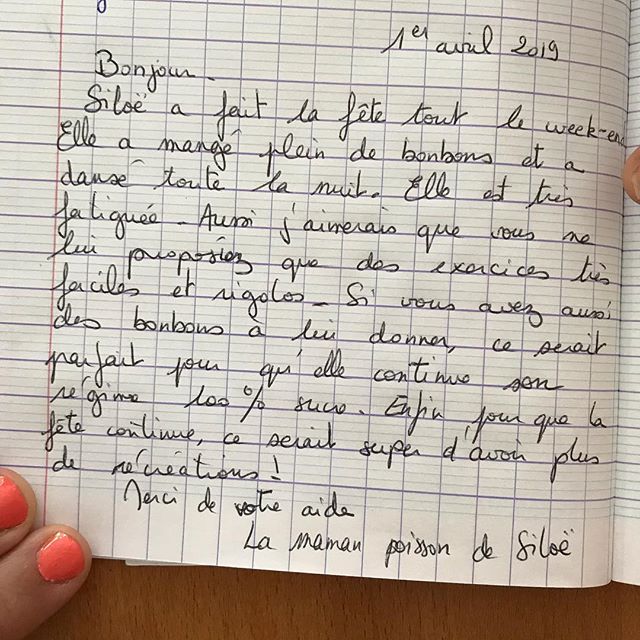 1er avril 2019
Bonjour.
Siloë a fait la fête tout le week-end
Elle a mangé plein de bonbons et a
dansé toute la nuit. Elle est très
fatiguée. Aussi j'aimerais que vous ne
lui proposiez que des exercices très
faciles et rigolos. Si vous avez aussi
des bonbons a lui donner, ce serait
parfait pour qu'elle continue son
régime 100% sucre. Enfin pour que la
fête continue, ce serait super d'avoir plus
de récréations!
Merci de votre aide
La maman poisson de Siloë